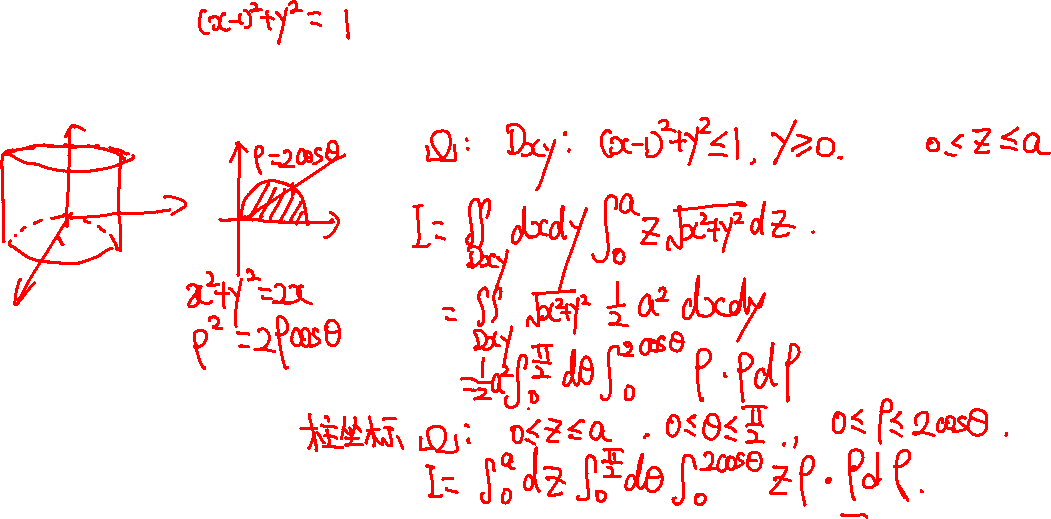 (x-1)²+y²=1
ρ=2cosθ
x²+y²=2x
ρ²=2ρcosθ
Ω: Dxy: (x-1)²+y²≤1, y≥0. 0≤z≤a
I=∬_Dxy dxdy ∫₀^a z√(x²+y²) dz.
=∬_Dxy √(x²+y²) 1/2 a² dxdy
=1/2 a² ∫₀^(π/2) dθ ∫₀^(2cosθ) ρ·ρdρ
柱坐标 Ω: 0≤z≤a, 0≤θ≤π/2, 0≤ρ≤2cosθ.
I=∫₀^a dz ∫₀^(π/2) dθ ∫₀^(2cosθ) zρ·ρdρ.